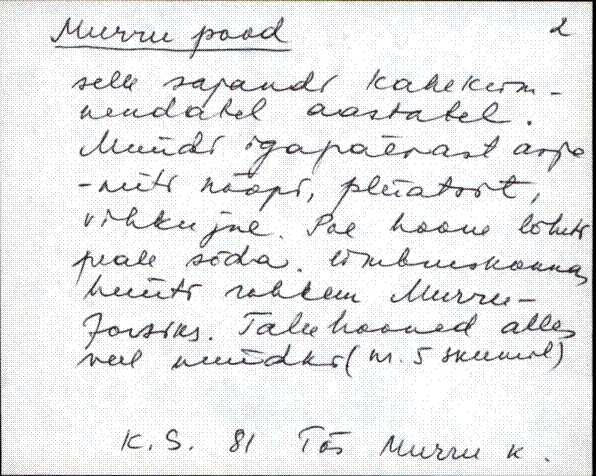 Murru pood 2
selle sajandi kaheküm-
nendatel aastatel.
Müüdi igapäevast asja
-niiti nööpi, pliiatsit,
vihku jne. Poe hoone lõhuti
peale sõda. Ümbruskonnas
hüüti rohkem Murru-
Talu hooned alles
veel nüüdki (nr. 5 skeemil)
K.S. 81 Tõs Murru k.